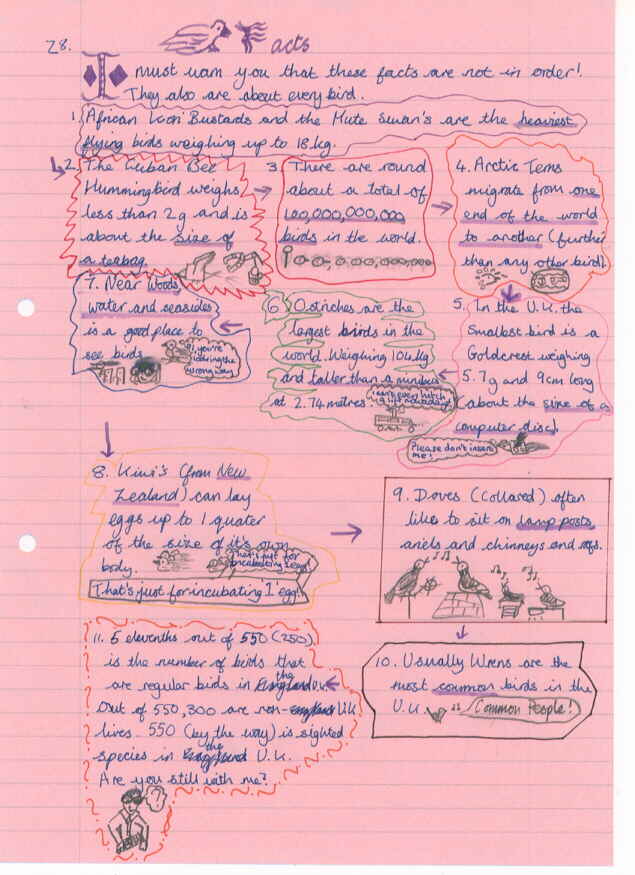 28. Facts
I must warn you that these facts are not in order!
They also are about every bird.
1. African Kori Bustards and the Mute Swan's are the heaviest
flying birds weighing up to 18 kg.
2. The Cuban Bee
Hummingbird weighs
less than 2g and is
about the size of
a teabag.
3. There are round
about a total of
100,000,000,000
birds in the world.
4. Arctic Terns
migrate from one
end of the world
to another (further
than any other bird).
5. In the U.K. the
smallest bird is a
Goldcrest weighing
5.7g and 9cm long
(about the size of a
computer disc).
Please don't insert
me!
6. Ostriches are the
largest birds in the
world. Weighing 104kg
and taller than a minibus
at 2.74 metres.
I can't even hitch
a lift nowadays!
7. Near Woods,
water and seasides
is a good place to
see birds
you're
looking the
wrong way
8. Kiwi's (from New
Zealand) can lay
eggs up to 1 quater
of the size of it's own
body.
That's just for
incubating 1 egg!
That's just for incubating 1 egg!
9. Doves (Collared) often
like to sit on lamp posts,
ariels and chinneys and roofs.
10. Usually Wrens are the
most common birds in the
U.K.
Common People!
11. 5 elevenths out of 550 (250)
is the number of birds that
are regular birds in England the U.K.
Out of 550, 300 are non-England U.K
lives. 550 (by the way) is sighted
species in England the U.K.
Are you still with me?
?